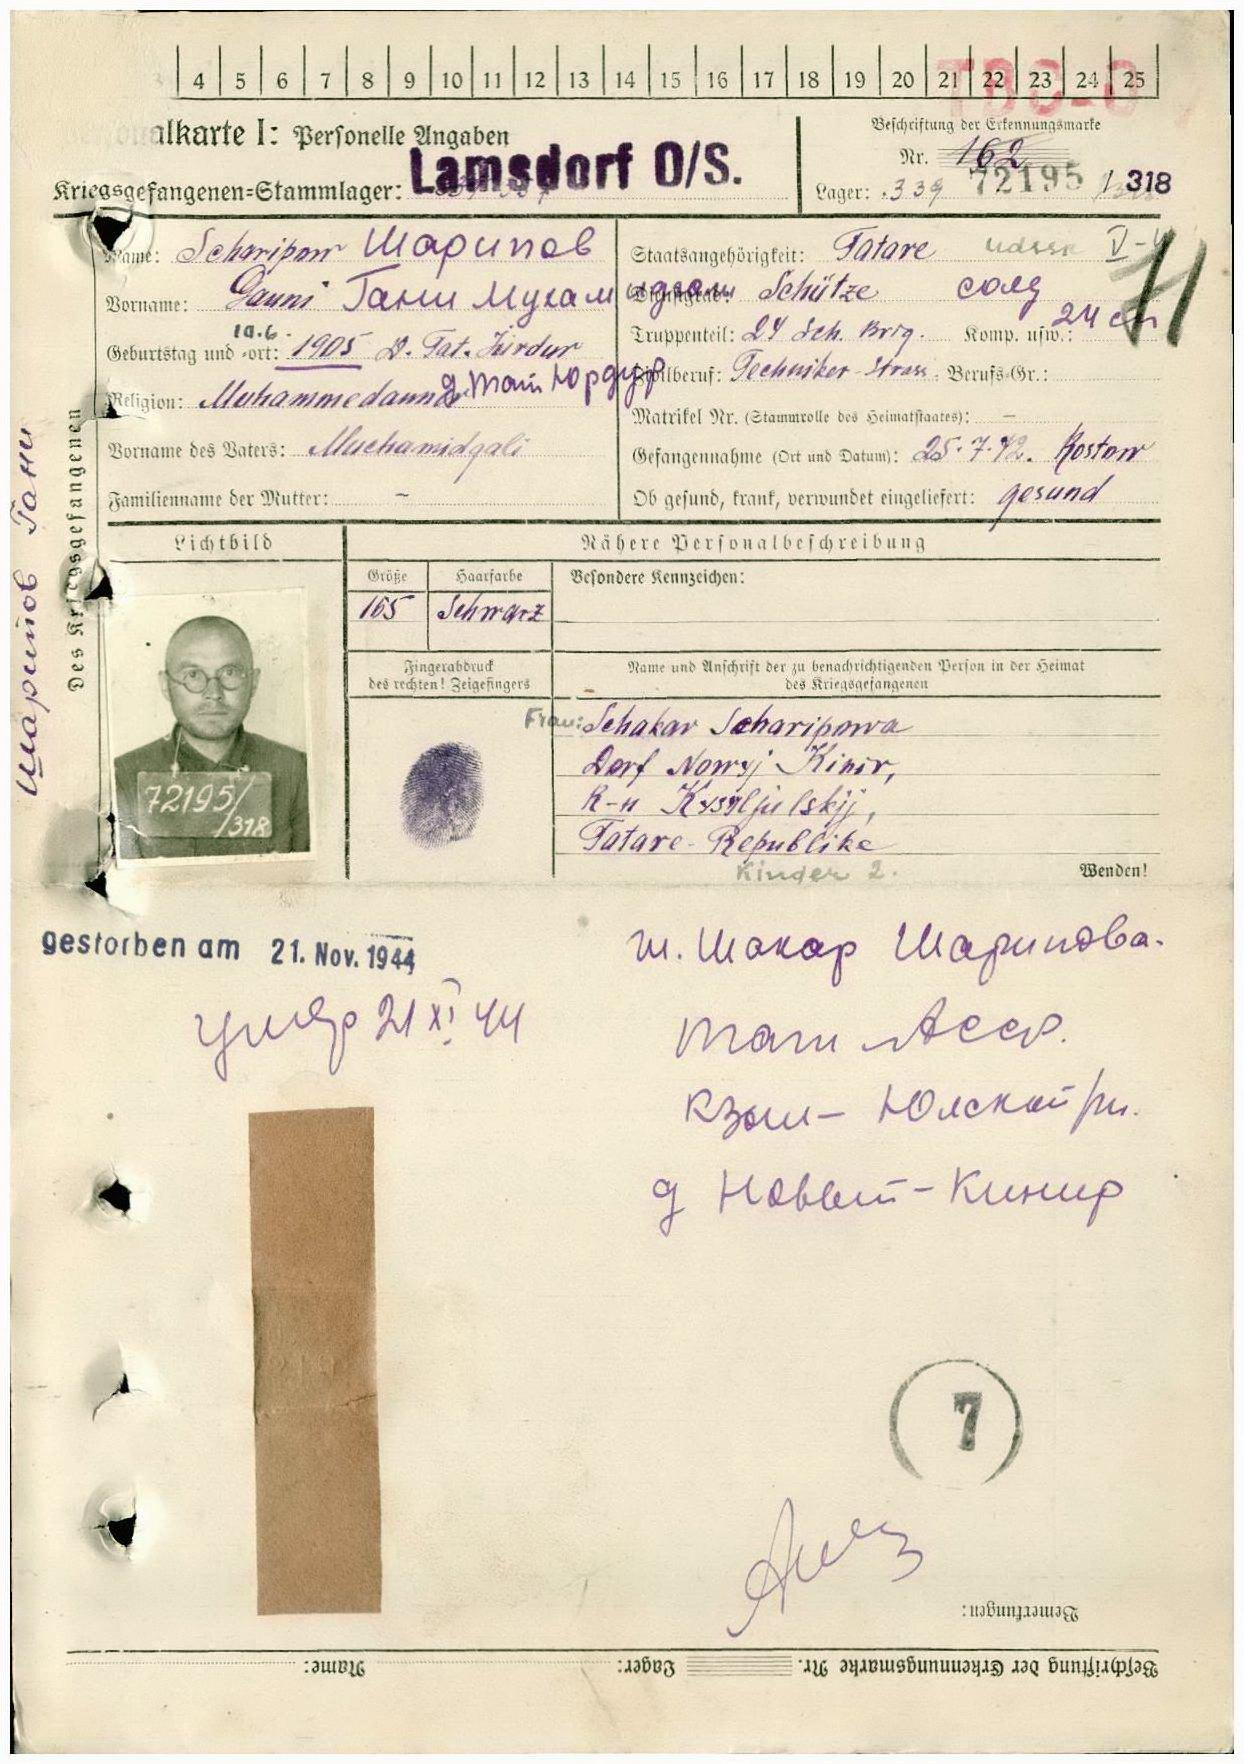 4 5 6 7 8 9 10 11 12 13 14 15 16 17 18 19 20 21 22 23 24 25
Personalkarte I: Personelle Angaben
Kriegsgefangenen=Stammlager: Lamsdorf O/S.
Beschriftung der Erkennungsmarke
Nr. 162
72195 / 318
Lager: 339
Name: Scharipow Шарипов
Vorname: Ganni Гани Мухамидгали
Geburtstag und =ort: 10.6. 1905 D. Tat. Jurdur
д. Тат Юрдур
Religion: Muhammedaner
Vorname des Vaters: Muchamidgali
Familienname der Mutter: –
Staatsangehörigkeit: Tatare UdSSR
Dienstgrad: Schütze солд
Truppenteil: 24 Sch. Brig. Komp. usw.: 24 сп
Zivilberuf: Techniker-Strass. Berufs=Gr.:
Matrikel Nr. (Stammrolle des Heimatstaates): –
Gefangennahme (Ort und Datum): 25.7.42. Rostow
Ob gesund, krank, verwundet eingeliefert: gesund
Des Kriegsgefangenen
Шарипов Гани
Lichtbild
Nähere Personalbeschreibung
Größe
165
Haarfarbe
Schwarz
Besondere Kennzeichen:
Fingerabdruck
des rechten! Zeigefingers
Name und Anschrift der zu benachrichtigenden Person in der Heimat
des Kriegsgefangenen
Frau: Schakar Scharipowa
Dorf Nowyj Kinir,
R-n Kysyljulskij,
Tatare-Republike
Kinder 2.
Wenden!
72195/
/318
gestorben am 21. Nov. 1944
умер 21 XI 44
ж. Шакар Шарипова.
Тат АССР.
Кзыл-Юлский р-н.
д Новый-Кинир
7
Bemerkungen:
Beschriftung der Erkennungsmarke Nr. Lager: Name: